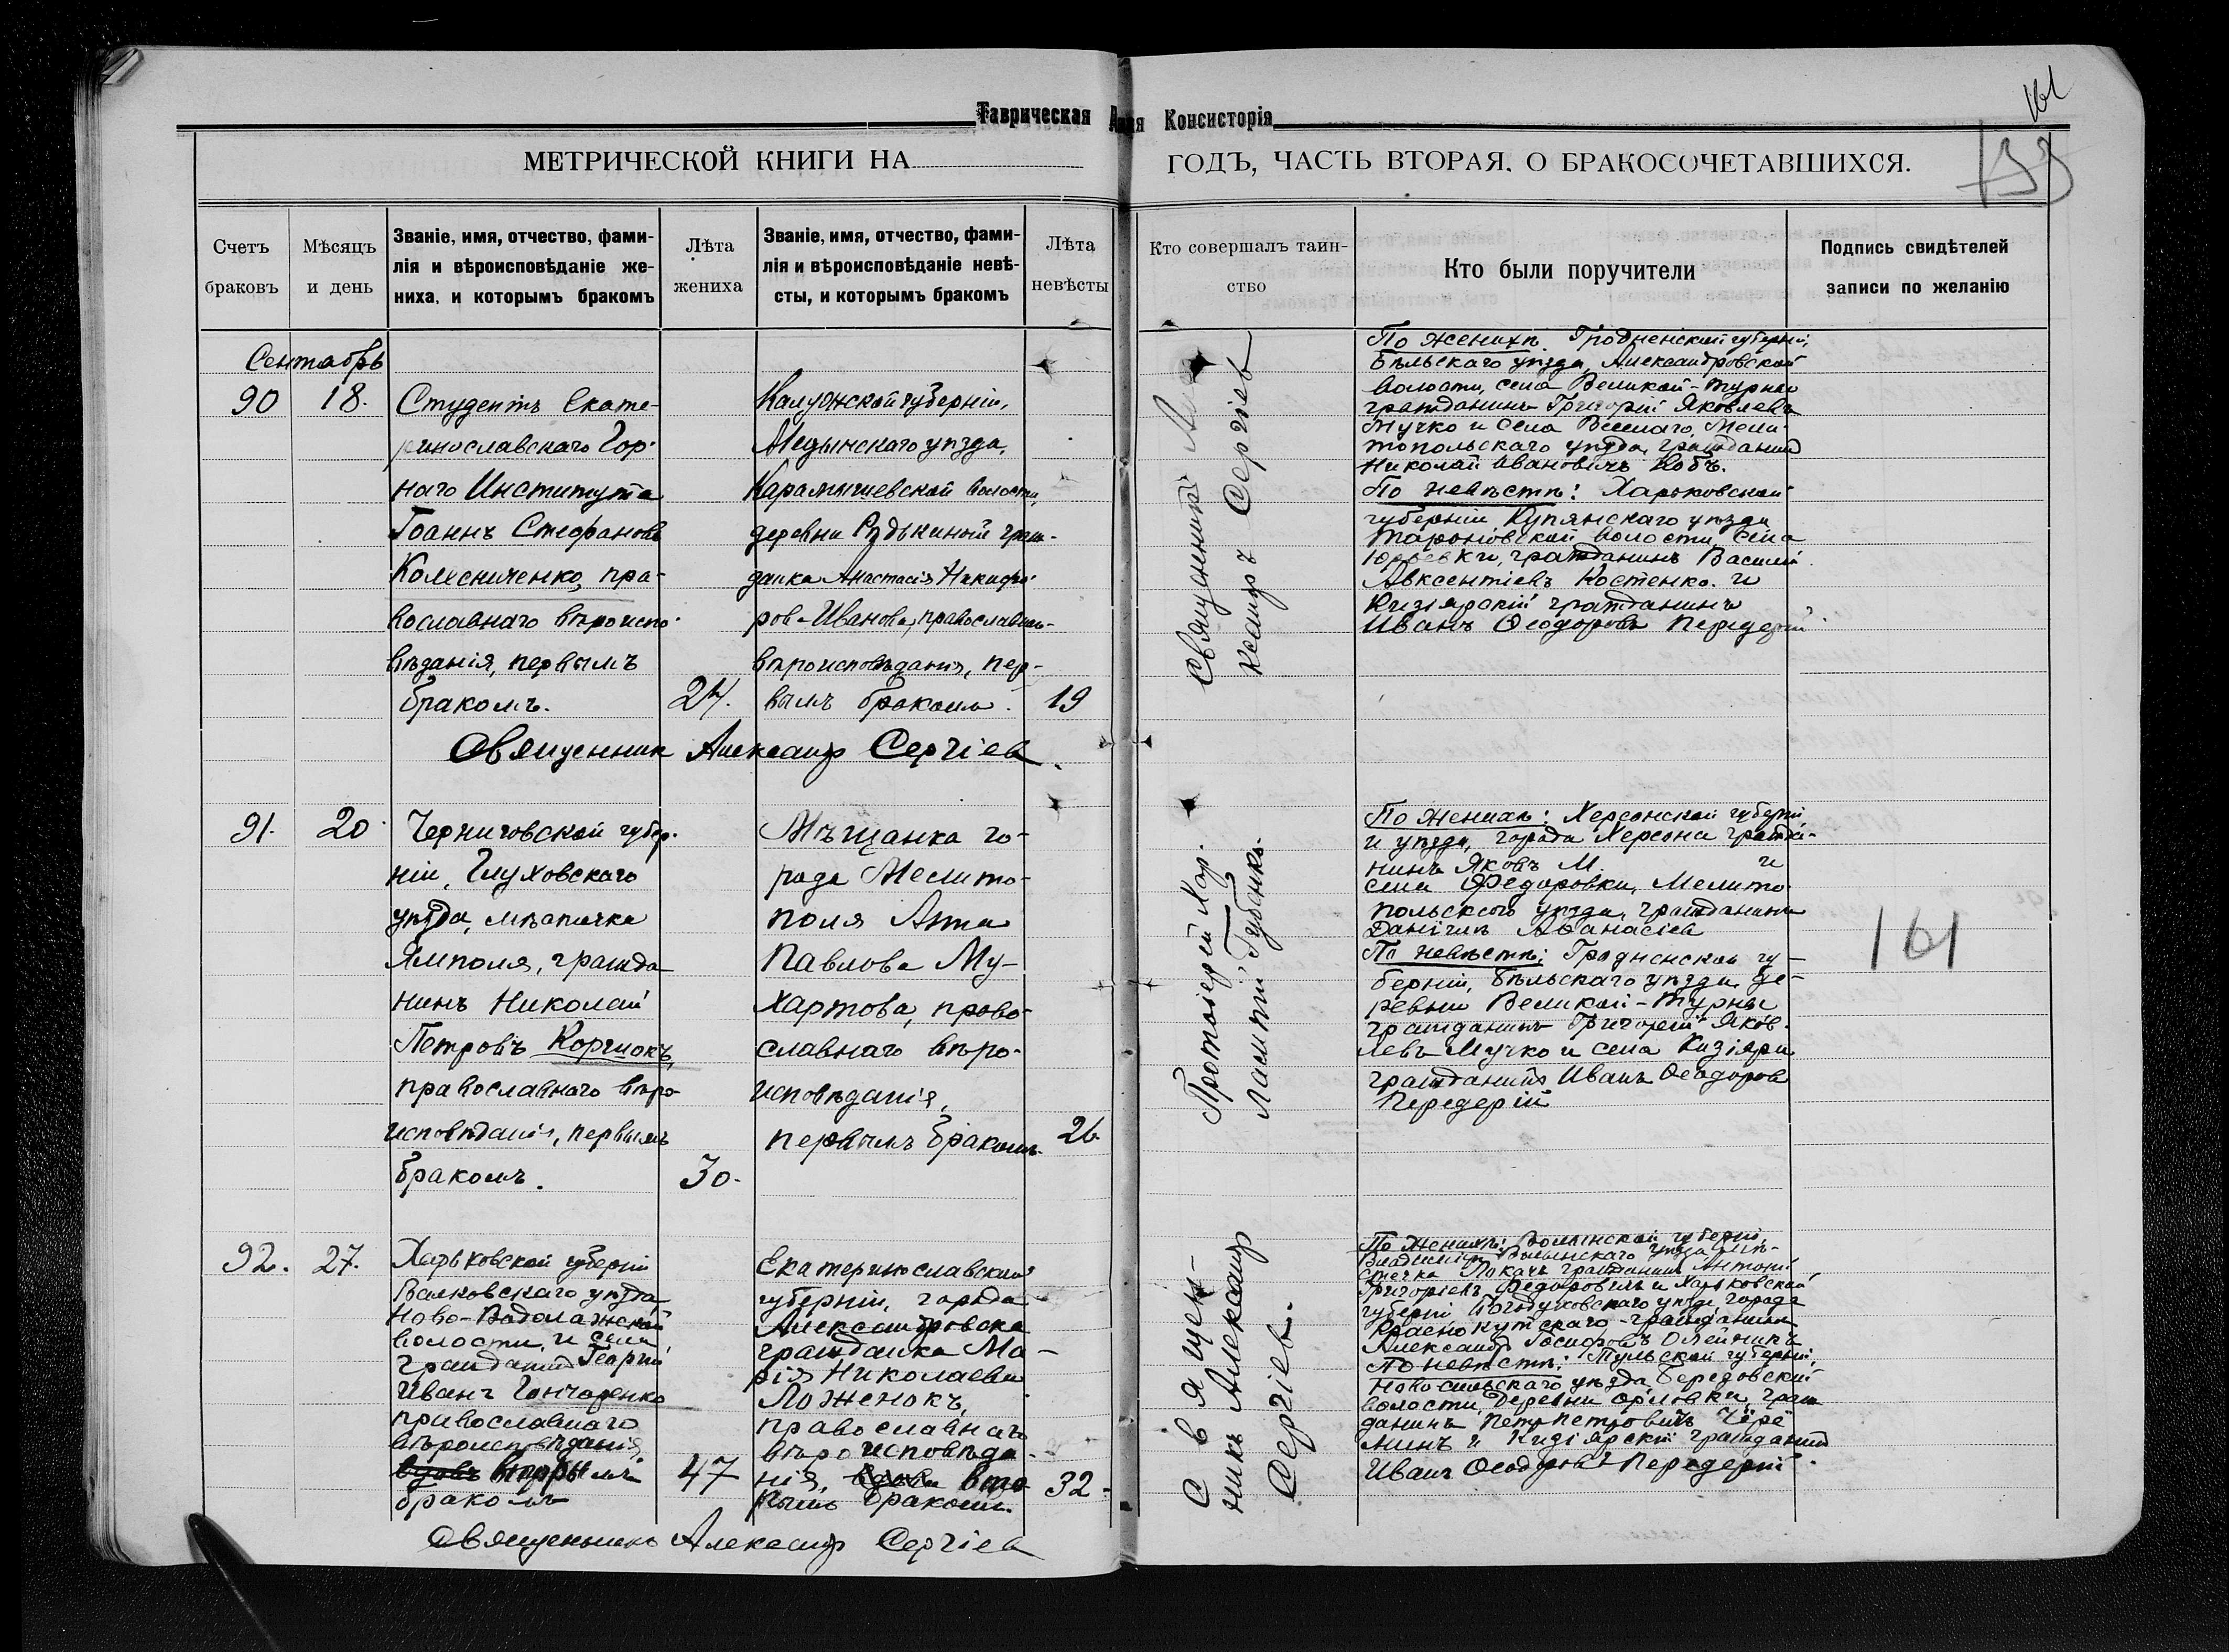 161
Таврическая Консисторія
МЕТРИЧЕСКОЙ КНИГИ НА
ГОДЪ, ЧАСТЬ ВТОРАЯ, О БРАКОСОЧЕТАВШИХСЯ.
Счетъ
браковъ
Мѣсяцъ
и день
Званіе, имя, отчество, фами-
лія и вѣроисповѣданіе же-
ниха, и которымъ бракомъ
Лѣта
жениха
Званіе, имя, отчество, фами-
лія и вѣроисповѣданіе невѣ-
сты, и которымъ бракомъ
Лѣта
невѣсты
Кто совершалъ таин-
ство
Кто были поручители
Подпись свидѣтелей
записи по желанію
Сентябрь
90
18.
Студентъ Екате-
ринославскаго Гор-
наго Института
Іоаннъ Стефановъ
Колесниченко, пра-
вославнаго вѣроиспо-
вѣданія, первымъ
бракомъ.
24.
Калужской губерніи,
Медынскаго уѣзда,
Карамышевской волости,
деревни Рудькиной граж-
данка Анастасія Никифо-
рова Иванова, православнаго
вѣроисповѣданія, пер-
вымъ бракомъ.
19
Священникъ Александр Сергіев
Священникъ Александръ Сергіев
По женихѣ Гродненской губерніи,
Бѣльскаго уѣзда, Александровской
волости, села Великой-Турны
гражданинъ Григорій Яковлевъ
Мучко и села Веселаго, Мели-
топольскаго уѣзда, гражданинъ
Николай Ивановичъ Кобъ.
По невѣстѣ: Харьковской
губерніи, Купянскаго уѣзда
волости, села
Юрьевки, гражданинъ Василій
Авксентіевъ Костенко. и
Кизіярскій гражданинъ
Иванъ Ѳеодоровъ Передерій
91.
20.
Черниговской губер-
ніи, Глуховскаго
уѣзда, мѣстечка
Ямполя, гражда-
нинъ Николай
Петровъ Коргмокъ,
православнаго вѣро-
исповѣданія, первымъ
бракомъ.
30.
Мѣщанка го-
рода Мелито-
поля Анна
Павлова Му-
хартова, право-
славнаго вѣро-
исповѣданія,
первымъ бракомъ.
26
Протоіерей Хар.
Губенко.
По женихѣ: Херсонской губерніи
и уѣзда, города Херсона гражда-
нинъ Яковъ М. и
села Федоровки, Мелито-
польскаго уѣзда, гражданинъ
Даніилъ Аѳанасіев
По невѣстѣ: Гродненской гу-
берніи, Бѣльскаго уѣзда, де-
ревни Великой-Турны
гражданинъ Григорій Яков-
левъ Мучко и села Кизіяри
гражданинъ Иванъ Ѳеодоров
Передерій
161
92.
27.
Харьковской губерніи
Валковскаго уѣзда
Ново-Водолажской
волости, и села
гражданинъ Георгій
Иванъ Гончаренко
православнаго
вѣроисповѣданія,
вдовъ вторымъ
бракомъ
47
Екатеринославской
губерніи, города
Александровска
гражданка Ма-
рія Николаева
Ложенокъ,
православнаго
вѣроисповѣда-
нія, вдова вто-
рымъ бракомъ.
32.
Священникъ Александр Сергіев
Священ-
никъ Александр
Сергіев.
По женихѣ: Волынской губерніи,
Владимір Волынскаго уѣзда, мѣ-
стечка Локачъ гражданинъ Антоній
Григоріевъ Федоровичъ и Харьковской
губерніи Богодуховскаго уѣзда, города
Краснокутскаго гражданинъ
Александр Іосифовъ Олейникъ
По невѣстѣ: Тульской губерніи,
Новосильскаго уѣзда
волости, деревни Орловки, граж-
данинъ Петр Петровичъ Чере-
минъ и Кизіярскій гражданинъ
Иванъ Ѳеодоровъ Передерій.